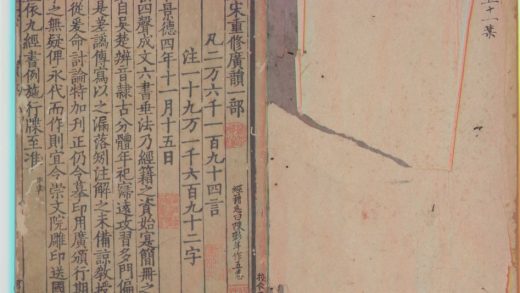 宋重修廣韻一部
凡二万六千一百九十四言
注一十九万一千六百九十二字
景德四年十一月十五日
四聲成文六書垂法乃經籍之資始寔簡冊之
自吳楚辨音隷古分體年祀寖遠攻習多門偏
是差譌傳寫以之漏落矧注解之未備諒教授
從爰命討論特加刋正仍令摹印用廣頒行期
之無疑俾永代而作則宜令崇文院雕印送國
依九經書例施行牒至准
經籍志曰陳彭年作五卷